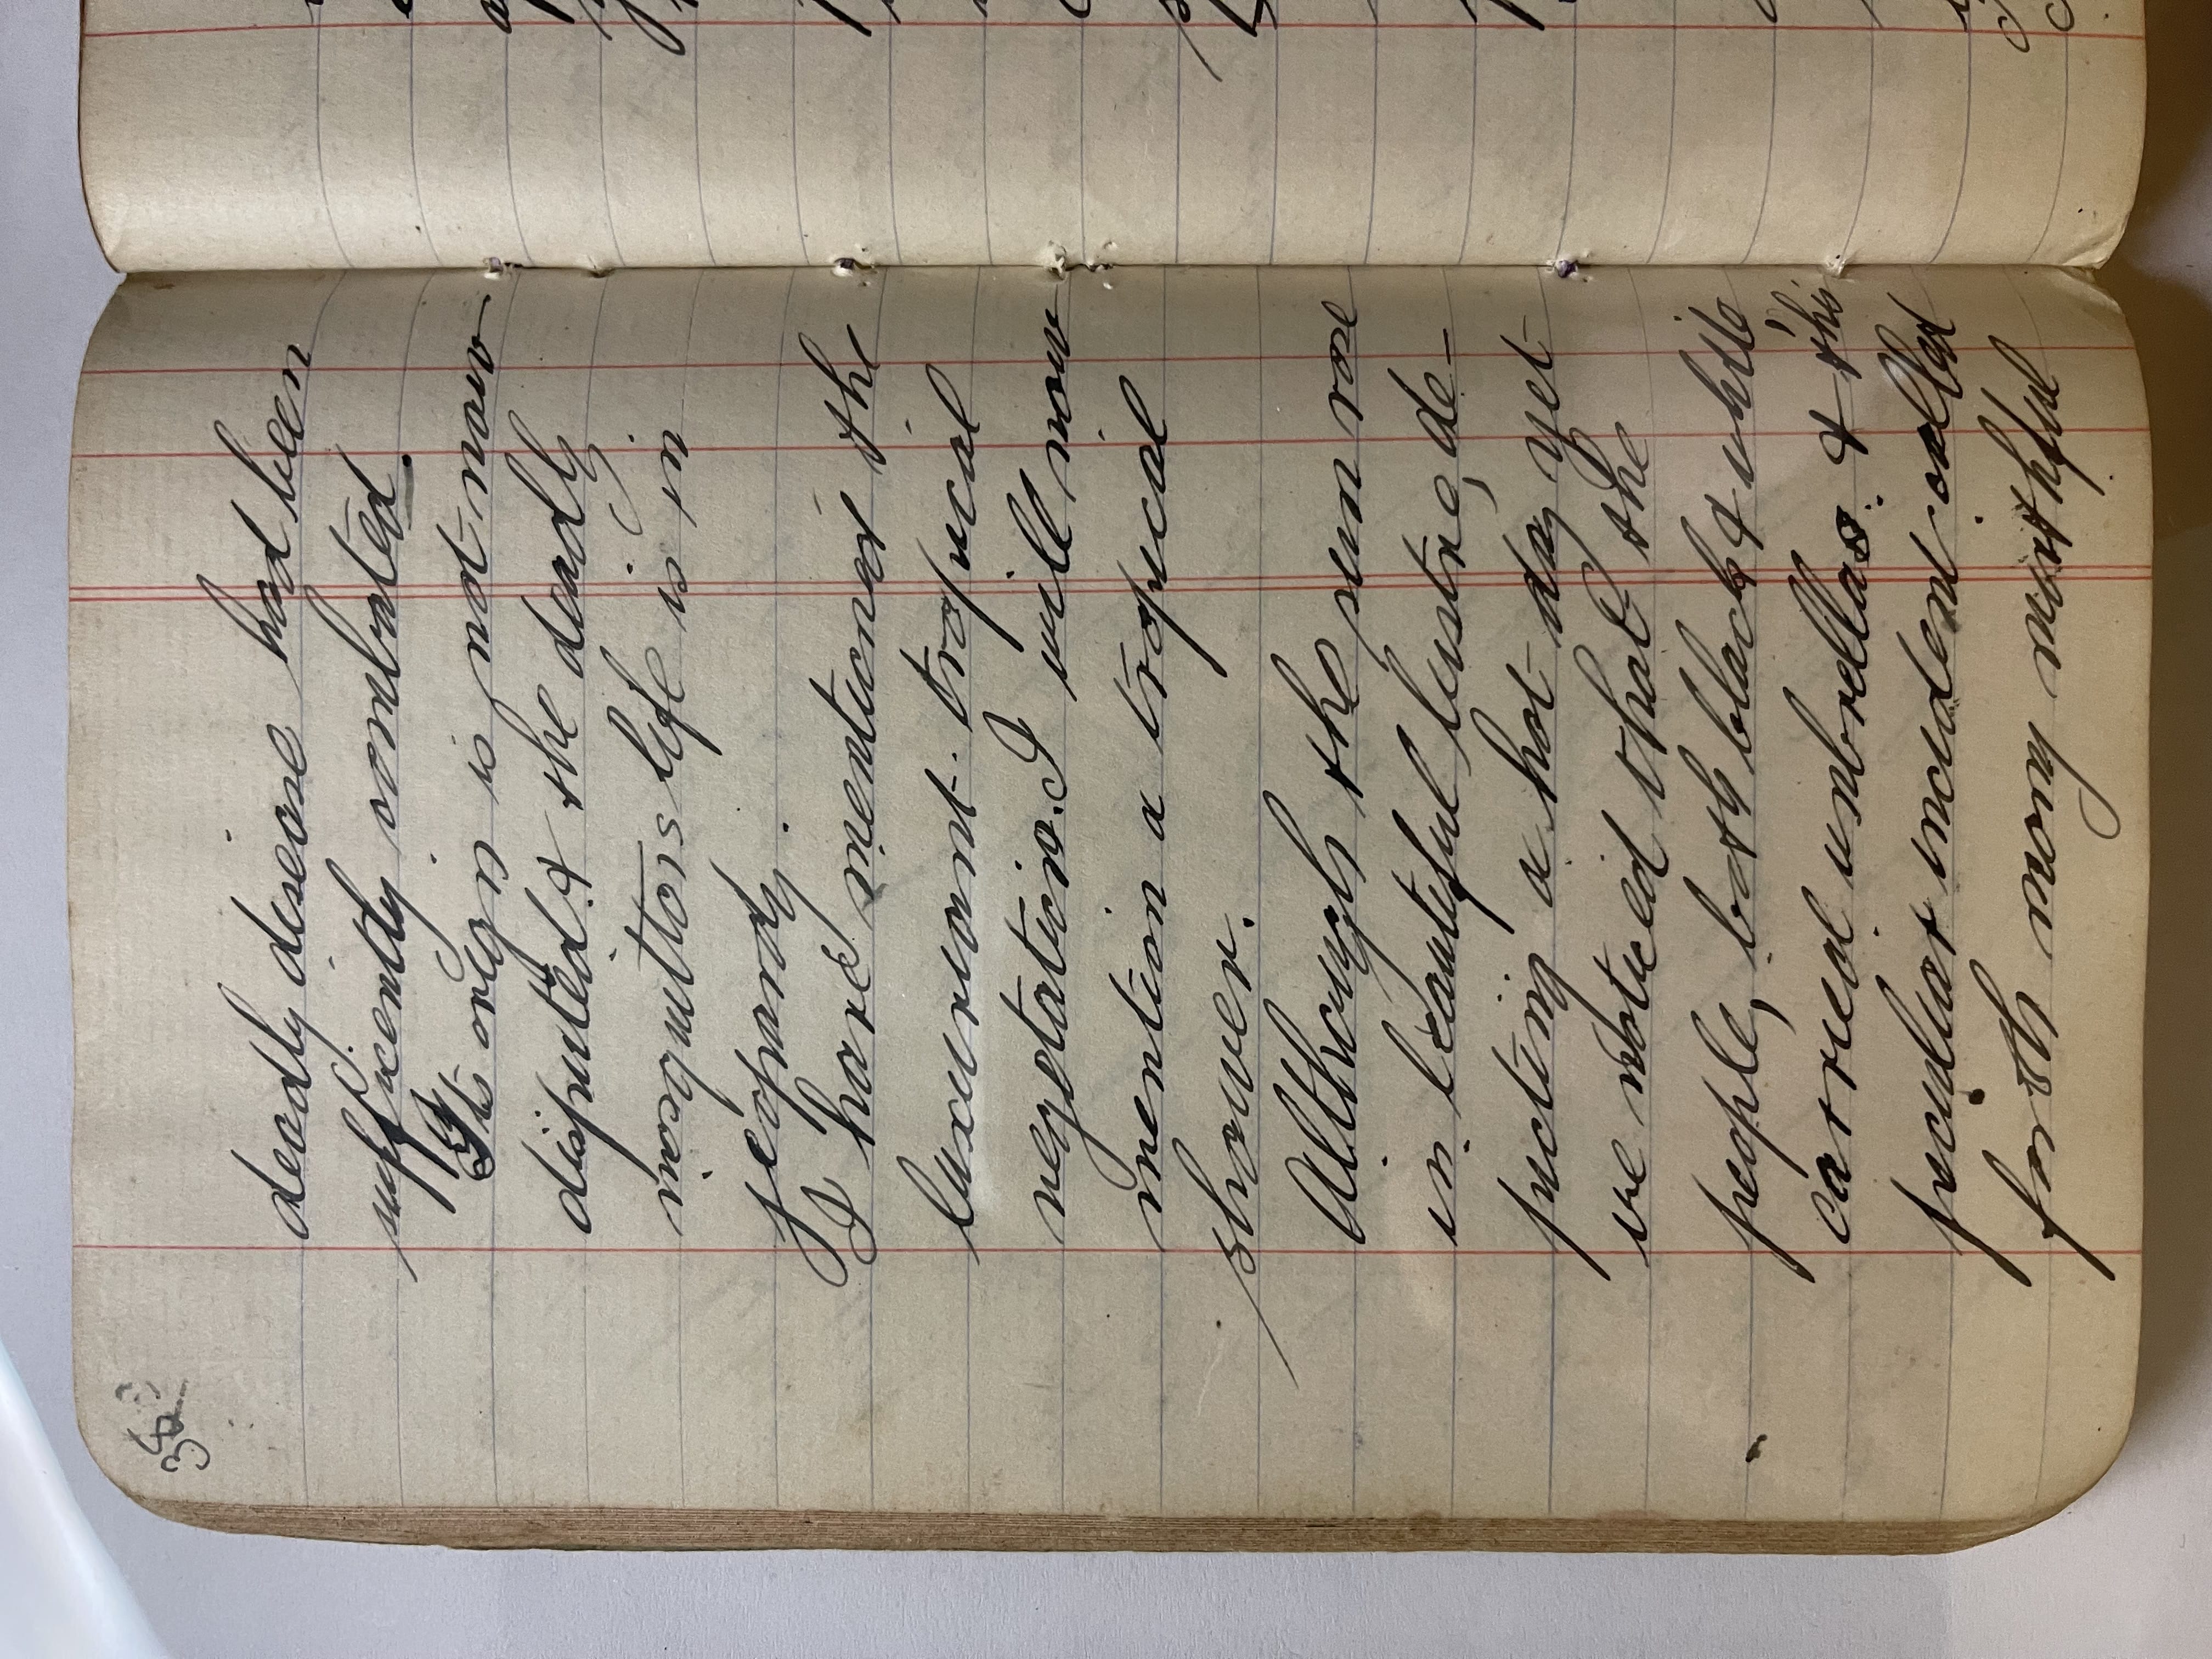 38
deadly disease had been
sufficently combated.
Its orign is not now
disputed & the deadly
mosquittors life is in
jeopardy.
I have mentioned the
luxcuriant tropical
vegetation. I will now
mention a tropical
shower.
Although the sun rose
in beautiful lustre, de-
picting a hot day yet
we noticed that the
people, both black & white
carried umbrellas. & this
peculiar incident called
forth many mirthful